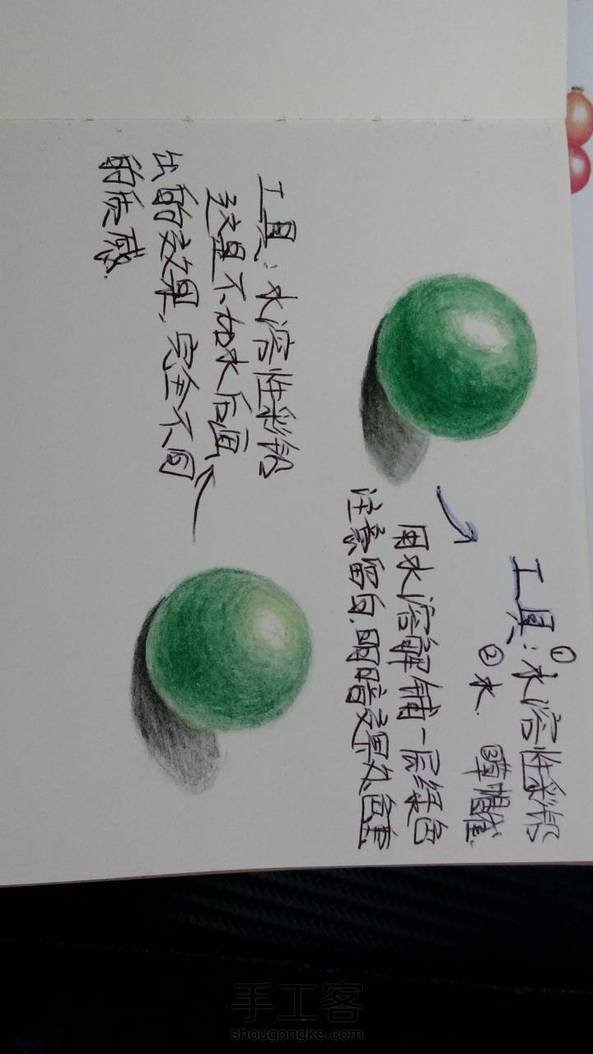 工具:①水溶性彩铅
②水.
用水溶解铺一层绿色
注意留白.明暗交界处色重
工具:水溶性彩铅
效果不如水后画
出的效果,完全不同
的质感.
手工客
shougongke.com